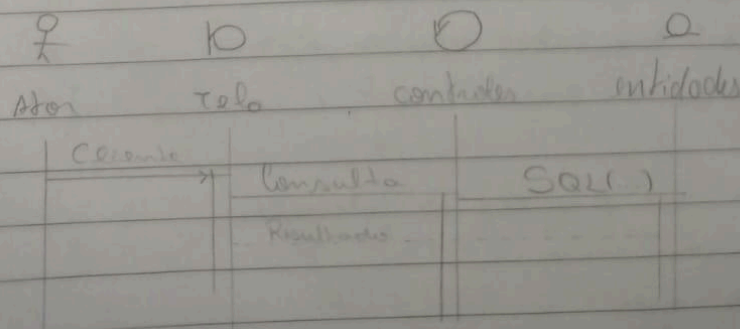 Ator Tela controles entidades
Consulta SQL( )
Resultados